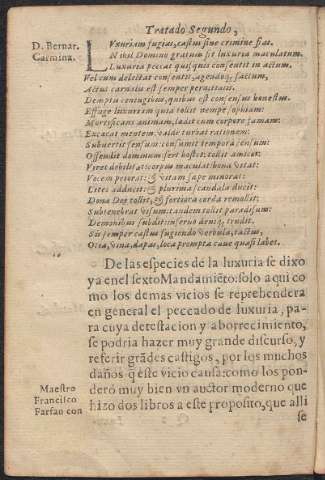 Tratado Segundo,
D. Bernar.
Carmina.
LVxuriam fugias, castus sine crimine fias.
Nihil Domino gratum sit luxuria maculatum.
Luxuria peccat quisquis consentit in actum,
Vel cum delectat consentit, agendoq; factum,
Actus carnalis est semper peccati talis.
Dempta coniugibus, quibus est consensus honestus.
Effuge luxuriem quia tollit tempus, opusque:
Mortificans animam, lædit cum corpore famam:
Excæcat mentem: valde turbat rationem:
Subuertit sensum: consumit tempora censum:
Offendit dominum fert hostes: tollit amicos:
Vires debilitat: corpus maculat: bona vastat:
Vocem peiorat: & vitam sæpe minorat:
Lites adducit: & plurima scandala ducit:
Dona Dei tollit, & fortiora corda remollit:
Subtenebrat visum: tandem tollit paradisum:
Demonibus subdit: inferno denique tradit.
Sis semper castus fugiendo verbula, tactus,
Otia, vina, dapes, loca prompta caue quasi labes.
De las especies de la luxuria se dixo
ya en el sexto Mandamiẽto: solo aqui co
mo los demas vicios se reprehendera
en general el peccado de luxuria, pa-
ra cuya detestacion y aborrecimiento,
se podria hazer muy grande discurso, y
referir grãdes castigos, por los muchos
daños q̃ este vicio causa: como los pon-
deró muy bien vn auctor moderno que
hizo dos libros a este proposito, que alli
Maestro
Francisco
Farfan con
se